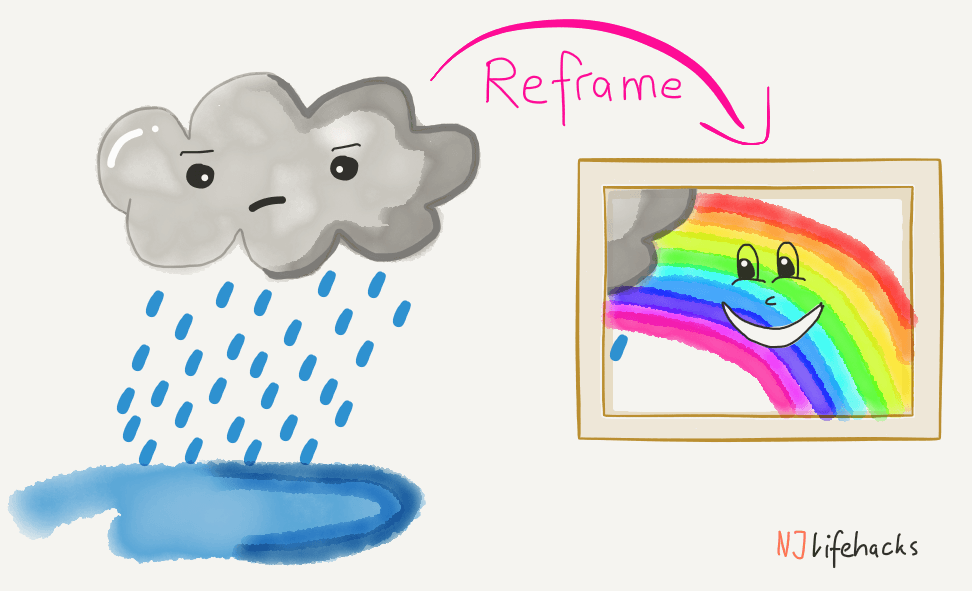 Reframe
NJlifehacks